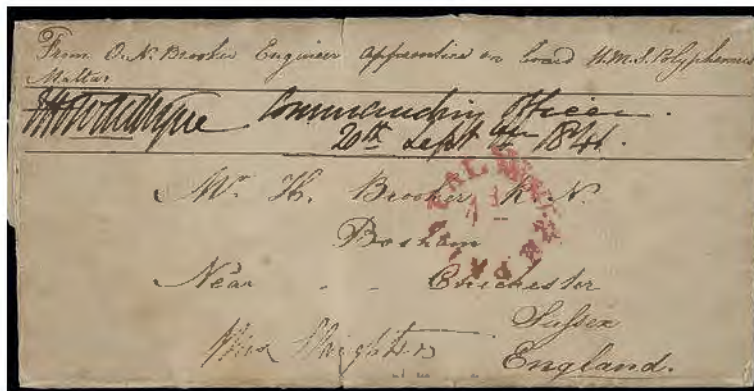 From O. N. Brooker Engineer apprentice on board H.M.S. Polyphemus
Maltar
Commanding Officer.
20th Sept 1841.
Mr Th. Brooker R. N.
Bosham
Near - - Chichester
Sussex
England.